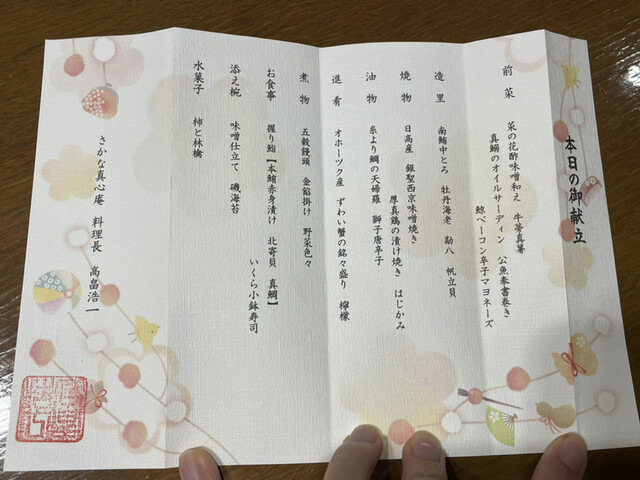 本日の御献立
前菜　菜の花酢味噌和え　牛蒡真薯
真鰯のオイルサーディン　公魚奉書巻き
鯨ベーコン辛子マヨネーズ
造里　南鮪中とろ　牡丹海老　勘八　帆立貝
焼物　日高産　銀聖西京味噌焼き
厚真鶏の漬け焼き　はじかみ
油物　糸より鯛の天婦羅　獅子唐辛子
進肴　オホーツク産　ずわい蟹の銘々盛り　檸檬
煮物　五穀饅頭　金餡掛け　野菜色々
お食事　握り鮨【本鮪赤身漬け　北寄貝　真鯛】
いくら小鉢寿司
添え椀　味噌仕立て　磯海苔
水菓子　柿と林檎
さかな真心庵　料理長　高畠浩一